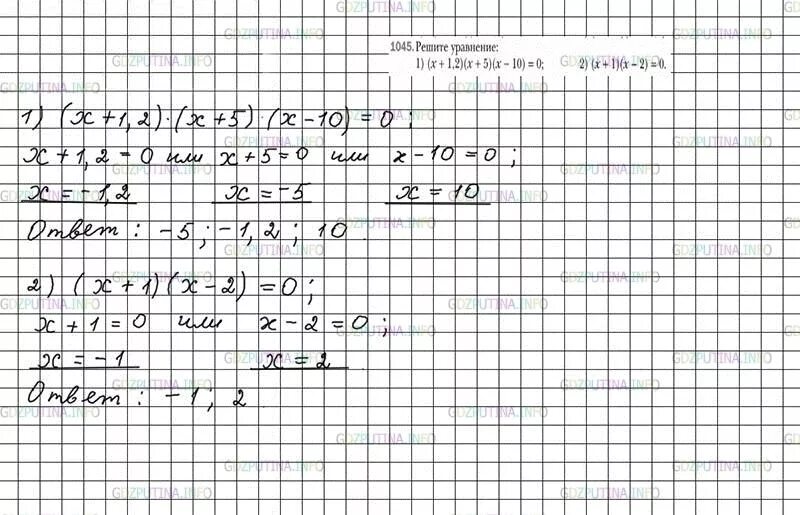 1045. Решите уравнение:
1) (x + 1,2)(x + 5)(x − 10) = 0; 2) (x + 1)(x − 2) = 0.
1) (x+1,2)·(x+5)·(x−10)=0;
x+1,2=0 или x+5=0 или x−10=0;
x=−1,2 x=−5 x=10
Ответ: −5; −1,2; 10.
2) (x+1)(x−2)=0;
x+1=0 или x−2=0;
x=−1 x=2
Ответ: −1; 2
GDZPUTINA.INFO